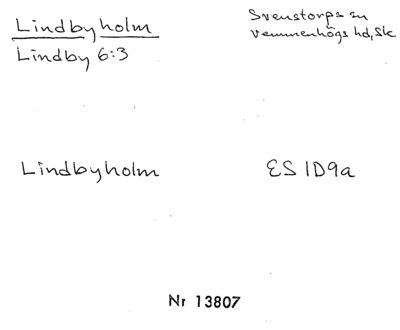 Lindbyholm
Svenstorps sn
Vemmenhögs hd, Sk
Lindby 6:3
Lindbyholm
ES 1D9a
Nr 13807